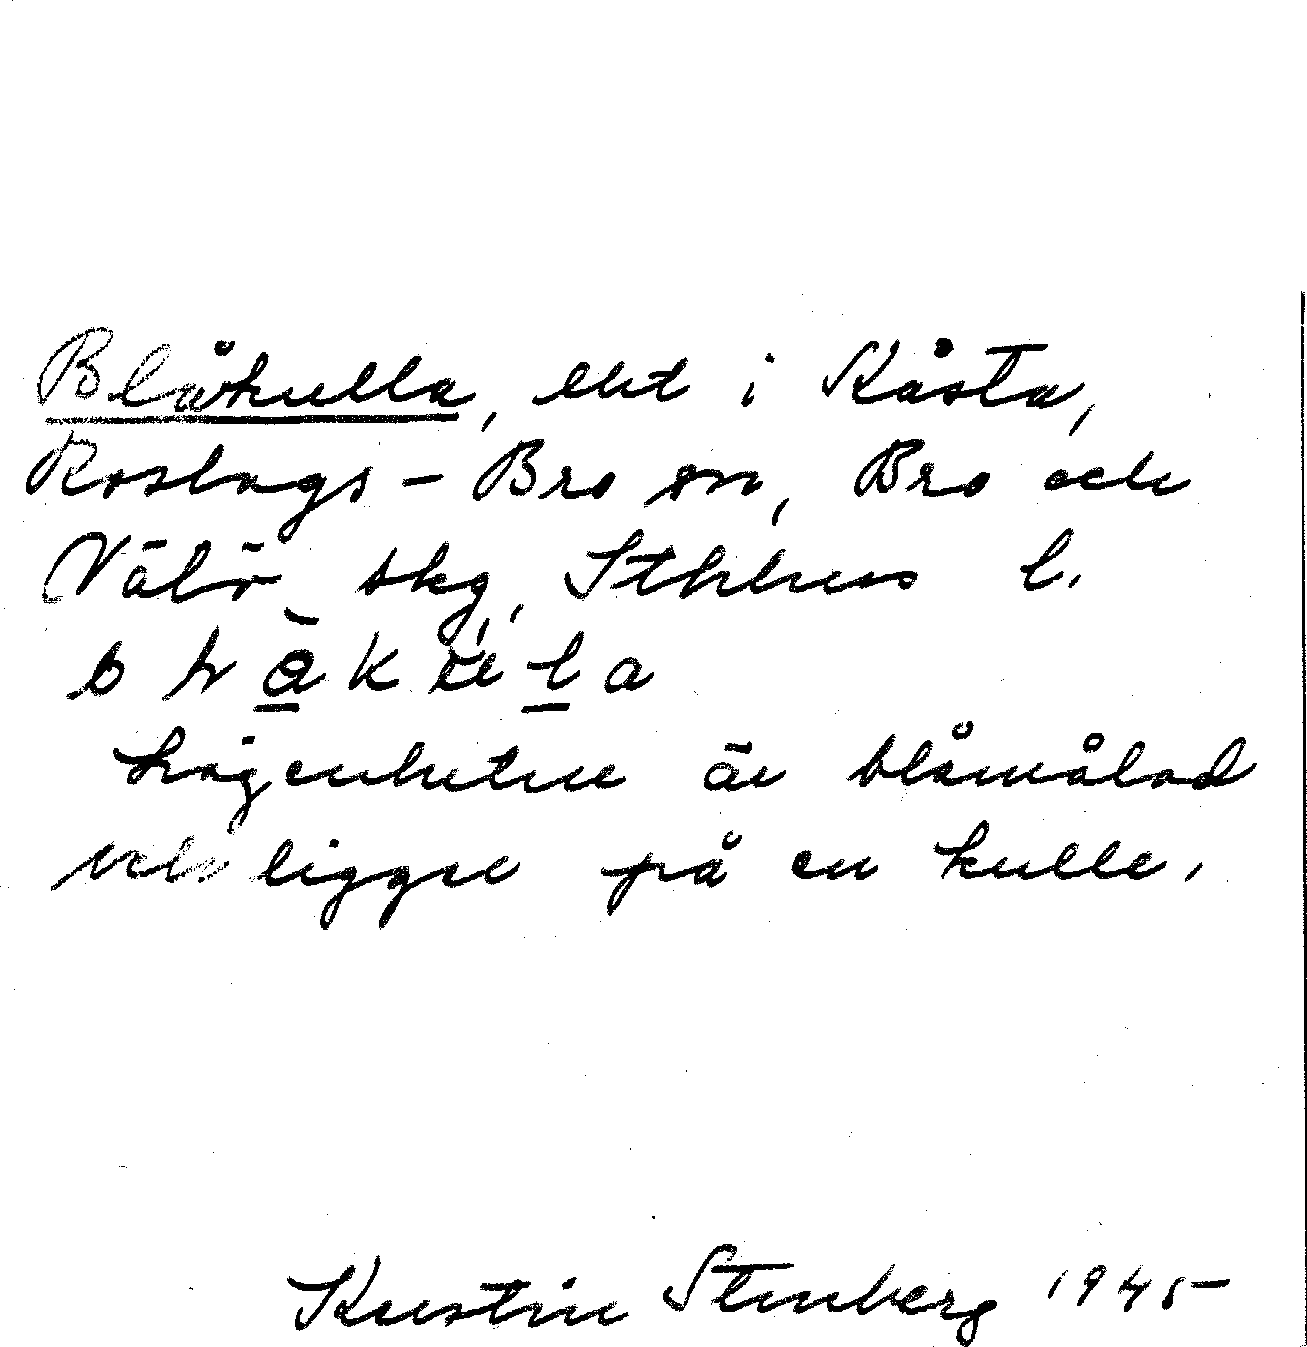 Blåkulla, lht i Kåsta,
Roslags-Bro sn, Bro och
Vätö skg, Sthlms l.
lägenheten är blåmålad
och ligger på en kulle.
Kerstin Stenberg 1945